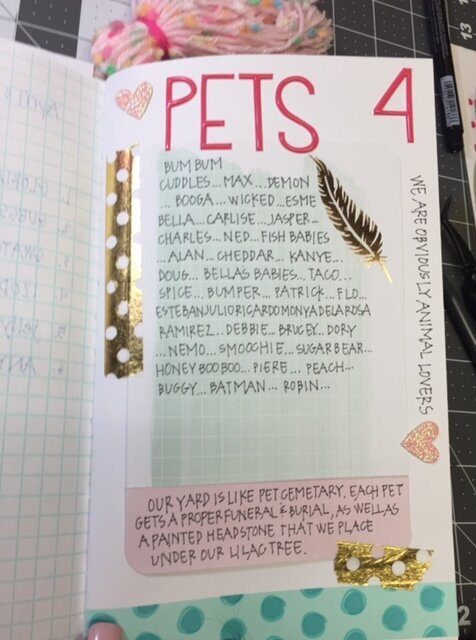 PETS 4
BUM BUM
CUDDLES... MAX... DEMON
... BOOGA... WICKED... ESME
BELLA... CARLISE... JASPER...
CHARLES... NED... FISH BABIES
... ALAN... CHEDDAR... KANYE...
DOUG... BELLA'S BABIES... TACO...
SPICE... BUMPER... PATRICK... FLO...
ESTEBANJULIORICARDOMONYADELAROSA
RAMIREZ... DEBBIE... BRUCEY... DORY
... NEMO... SMOOCHIE... SUGAR BEAR...
HONEY BOO BOO... PIERE... PEACH...
BUGGY... BATMAN... ROBIN...
WE ARE OBVIOUSLY ANIMAL LOVERS
OUR YARD IS LIKE PET CEMETARY. EACH PET
GETS A PROPER FUNERAL & BURIAL, AS WELL AS
A PAINTED HEADSTONE THAT WE PLACE
UNDER OUR LILAC TREE.
13
2